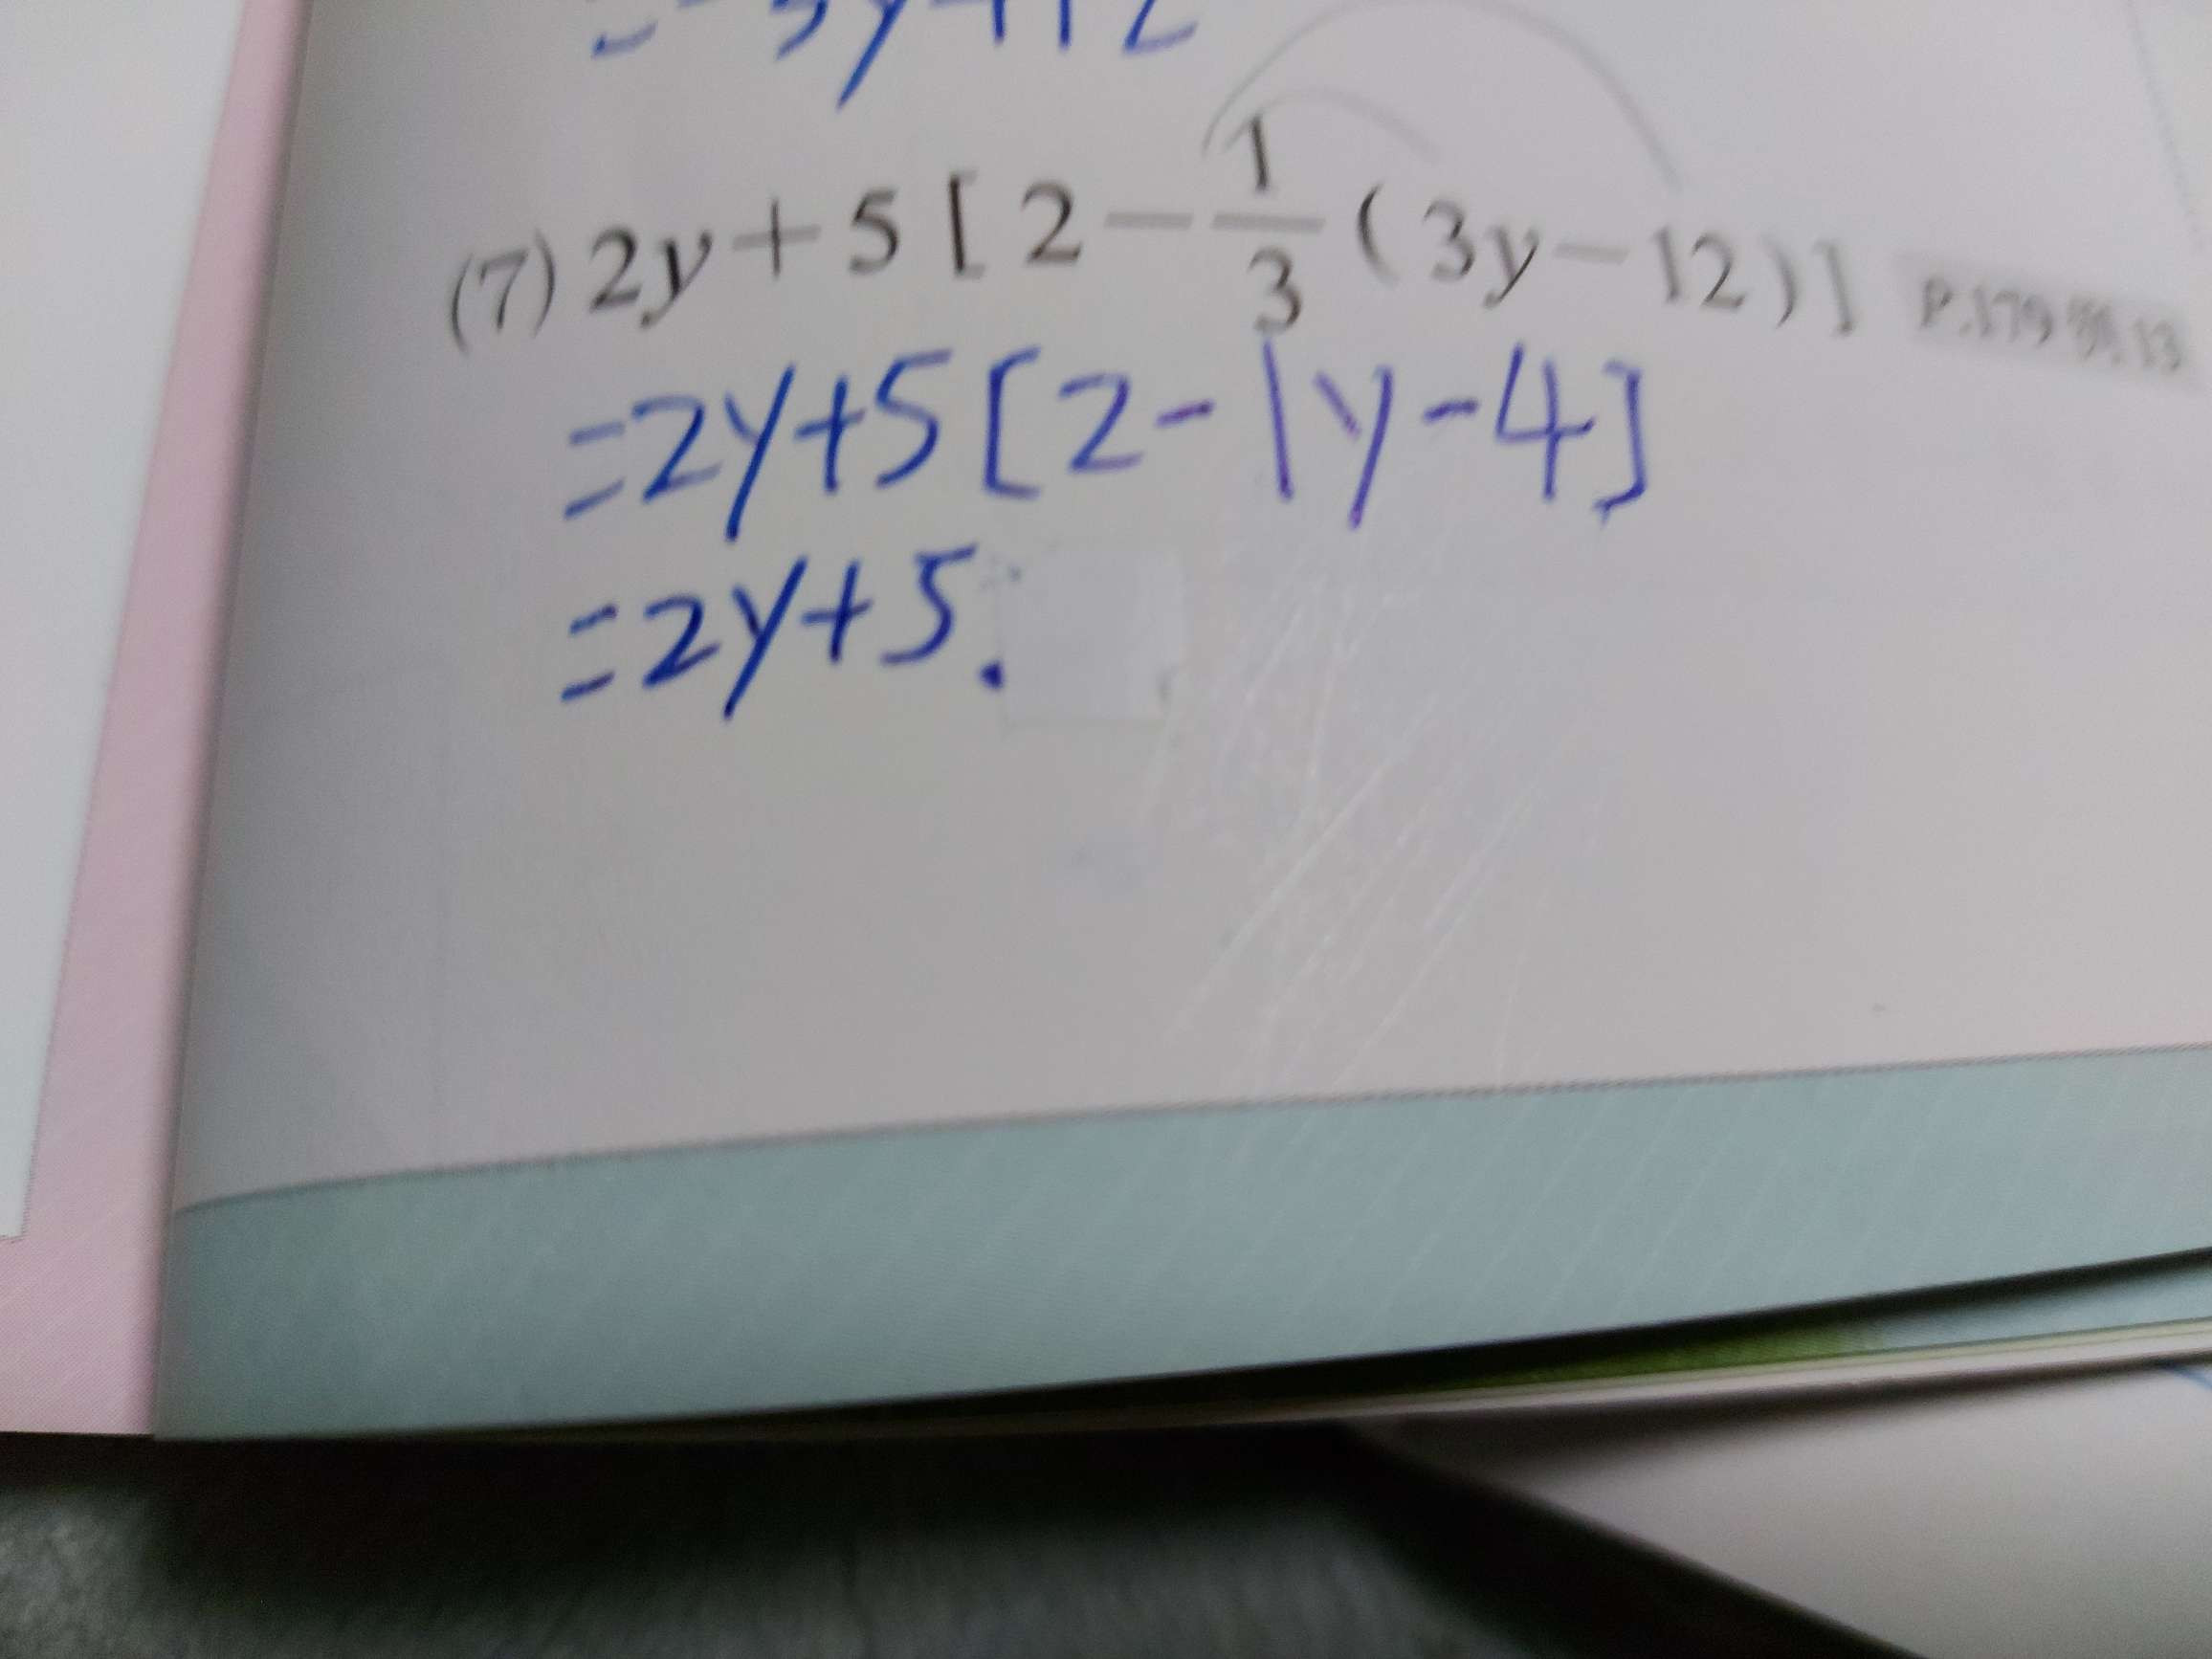 = -3y+12
(7) 2y+5 [ 2-\frac{1}{3} ( 3y-12 ) ] P.179 例13
=2y+5[2-1y-4]
=2y+5.